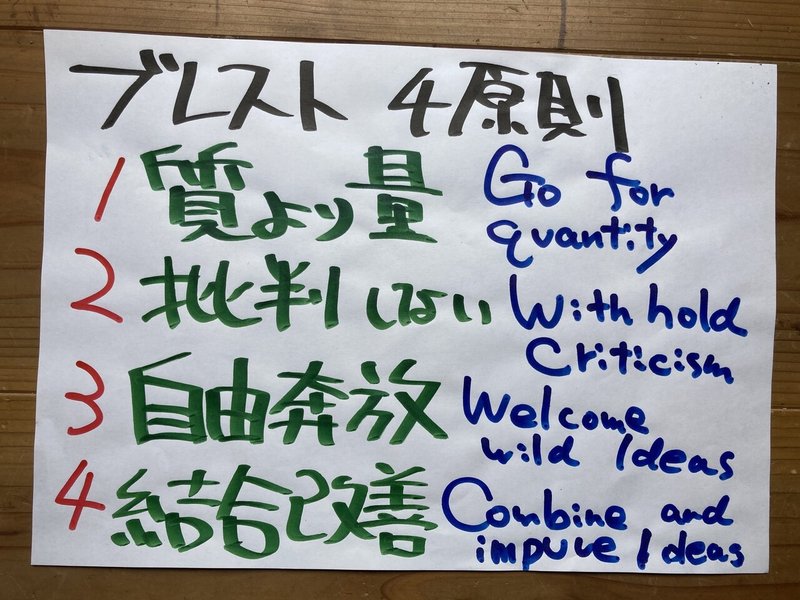 ブレスト 4原則
1 質より量 Go for
quantity
2 批判しない Withhold
Criticism
3 自由奔放 Welcome
wild Ideas
4 結合改善 Combine and
impuve Ideas